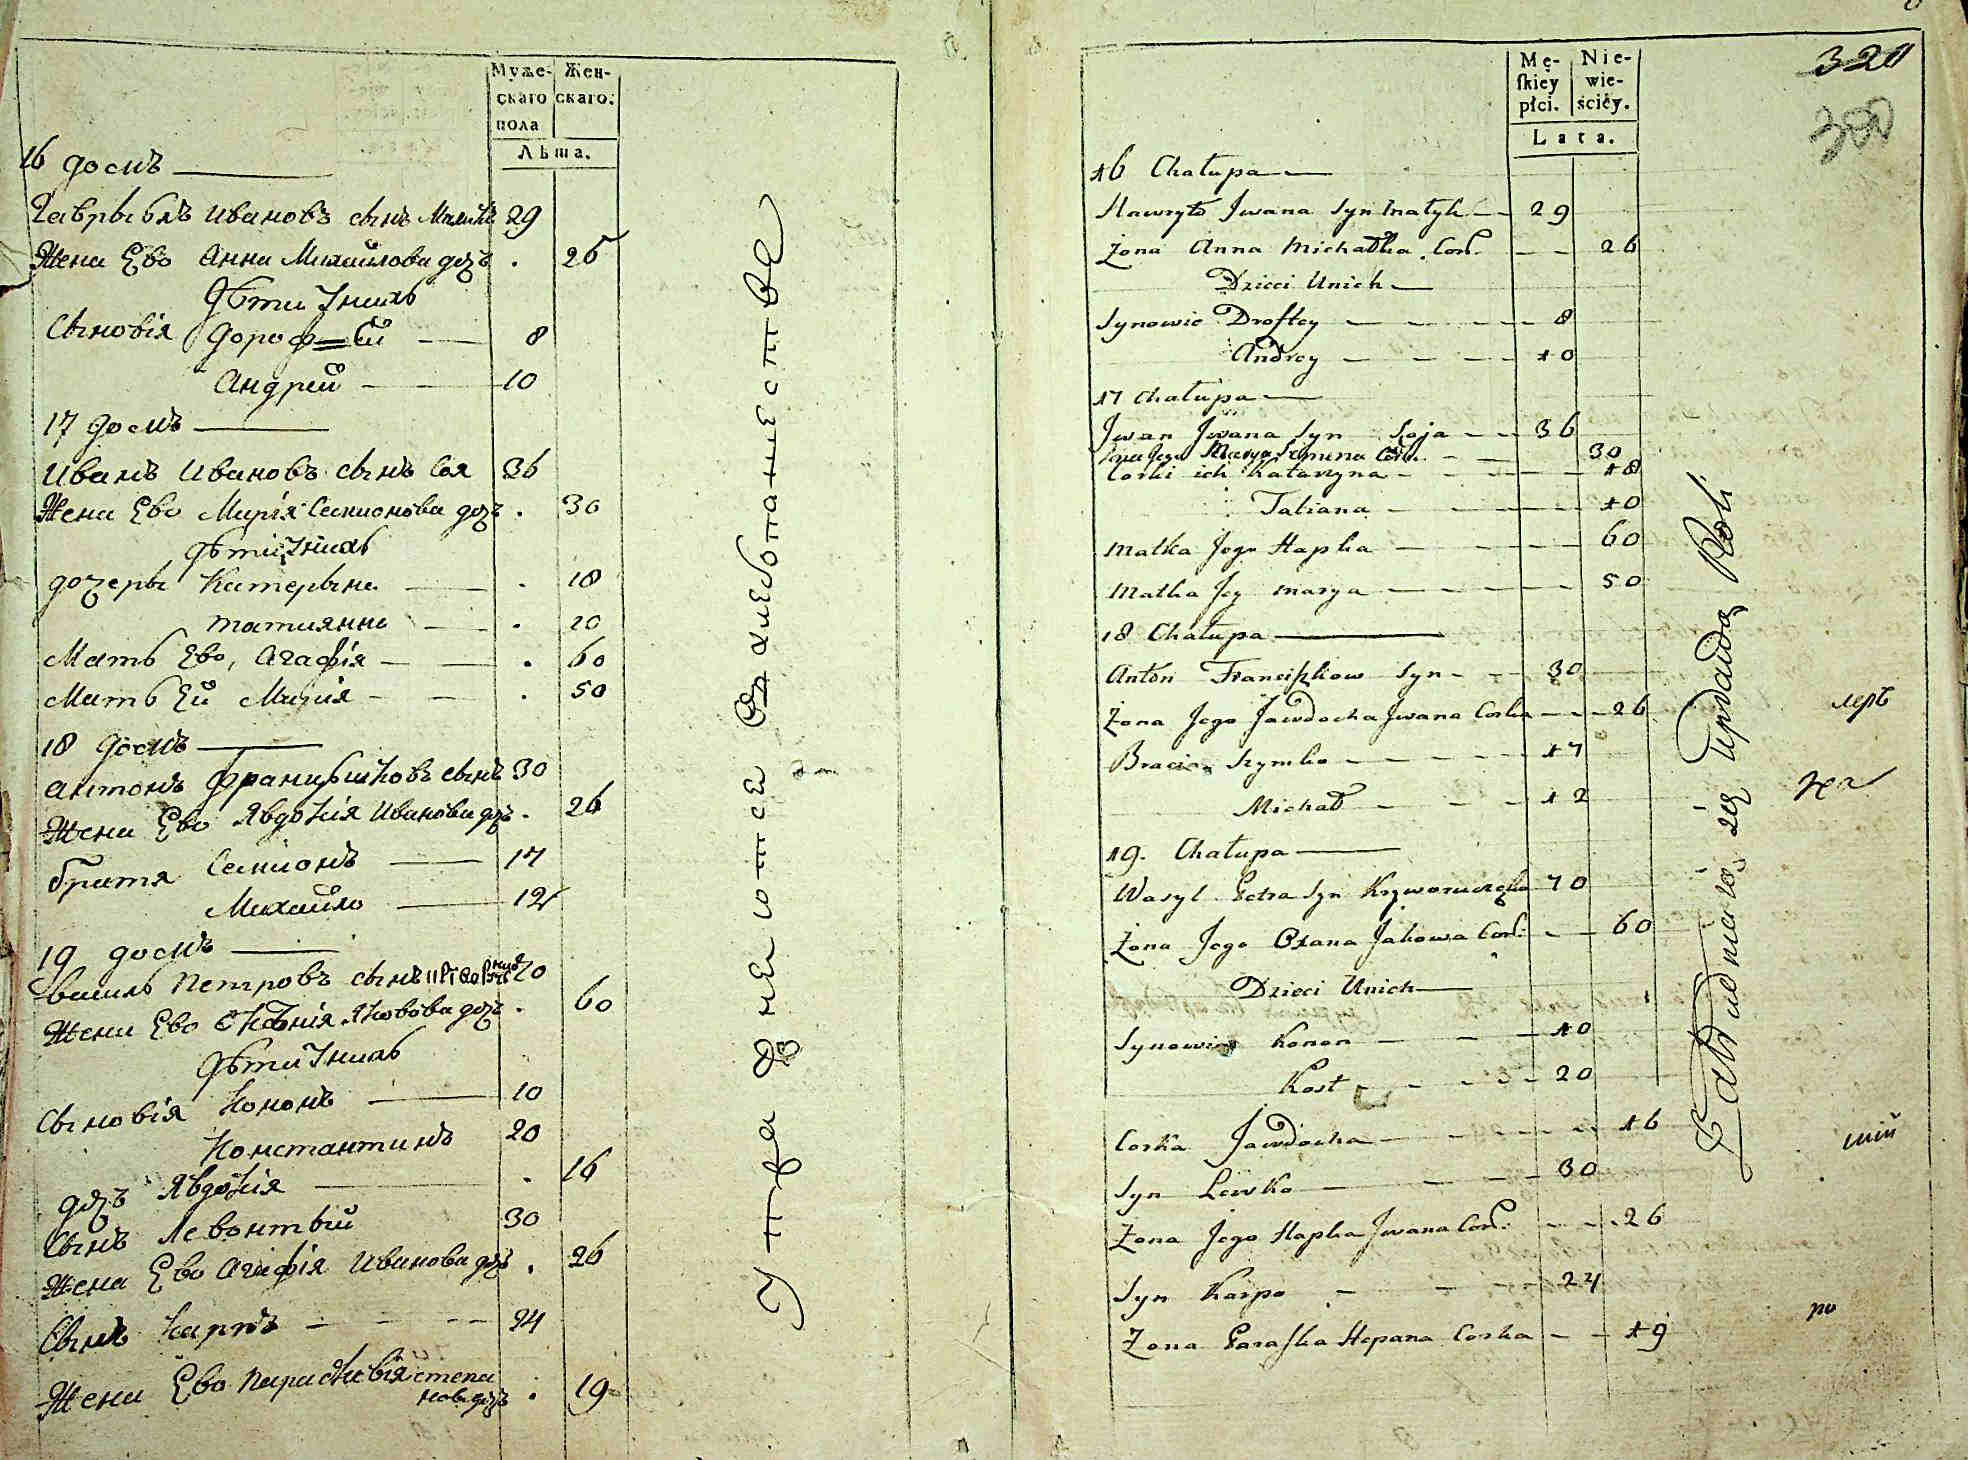 Муже- Жен-
скаго скаго.
пола
Лѣта.
16 домъ
Гаврыблъ Ивановъ сынъ 29
Жена Ево Анна Михайлова дочъ . 26
Дѣти Унихъ
Сыновія Дорофѣй 8
Андрей 10
17 домъ
Иванъ Ивановъ сынъ Соя 36
Жена Ево Марія Семионова дочъ . 30
Дѣти Унихъ
дочеры Катерына . 18
татиянна . 10
Мать Ево, Агафія . 60
Мать Ей Марія . 50
18 домъ
антонъ Францышковъ сынъ 30
Жена Ево Явдокія Иванова дочъ . 26
братя Семионъ 17
Михайло 12
19 домъ
василь Петровъ сынъ 70
Жена Ево Яковова дочъ . 60
Дѣти Унихъ
Сыновія Кононъ 10
Константинъ 20
дочъ Явдокія . 16
Сынъ Левонтый 30
Жена Ево Агафія Иванова дочъ . 26
Сынъ Карпъ 24
Жена Ево Параскевія степа
нова дочъ . 19
Упражняются Въ хлебопашестве
320
Mę- Nie-
skiey wie-
płci. ściéy.
Lata.
300
16 Chałupa
Hawryło Jwana Syn 29
Żona Anna Michałka Cor: 26
Dzieci Unich
Synowie Droftey 8
Andrey 10
17 Chałupa
Jwan Jwana Syn Soja 36
Żona Jego Marya Semena Cor: 30
Corki ich Katarzyna 18
Tatiana 10
Matka Jego Hapka 60
Matka Jey Marya 50
18 Chałupa
Anton Franciszkow Syn 30
Żona Jego Jawdocha Jwana Corka 26
Bracia Szymko 17
Michał 12
19. Chałupa
Wasyl Petra Syn 70
Żona Jego Oxana Jakowa Cor: 60
Dzieci Unich
Synowie Konon 10
Kost 20
Corka Jawdocha 16
Syn Lewko 30
Żona Jego Hapka Jwana Cor: 26
Syn Karpo 24
Żona Paraska Stepana Corka 19
Zatrudniaią się uprawą Roli